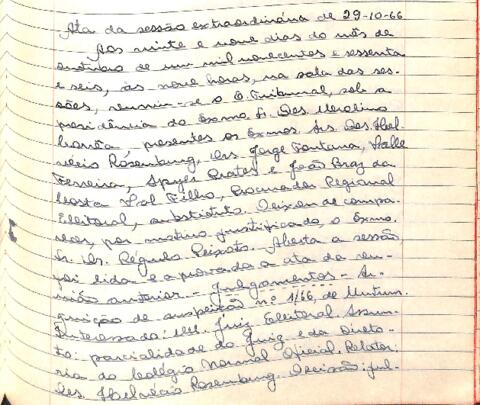 Ata da sessão extraordinária de 29-10-66
Aos vinte e nove dias do mês de
outubro de um mil novecentos e sessenta
e seis, às nove horas, na sala das ses-
sões, reuniu-se o E. Tribunal, sob a
presidência do Exmo Sr. Des. Merolino
Corrêa, presentes os Exmos Srs. Des. Hel-
vécio Rosenburg, Drs. Jorge Fontana, Valle
Ferreira, Spyer Prates e João Braz da
Costa Val Filho, Procurador Regional
Eleitoral, substituto. Deixou de compa-
recer, por motivo justificado, o Exmo.
Sr. Dr. Régulo Peixoto. Aberta a sessão,
foi lida e aprovada a ata da reu-
nião anterior. - Julgamentos - Ar-
guição de suspeição nº 1/66, de Mutum.
Interessado: MM. Juiz Eleitoral. Assun-
to: parcialidade do Juiz e da Direto-
ria do Colégio Normal Oficial. Relator:
Des. Helvécio Rosenburg. Decisão: jul-